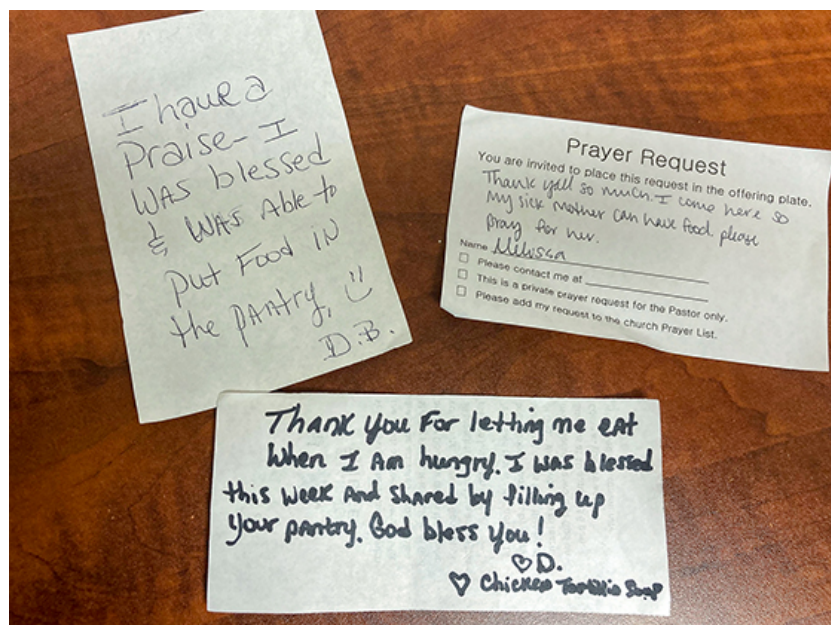 I have a
Praise- I
was blessed
& was Able to
put Food in
the pantry, :)
D.B.
Prayer Request
You are invited to place this request in the offering plate.
Thank yall so much. I come here so
my sick mother can have food. please
pray for her.
Name Melissa
☐ Please contact me at
☐ This is a private prayer request for the Pastor only.
☐ Please add my request to the church Prayer List.
Thank you For letting me eat
When I Am hungry. I was blessed
this week and shared by filling up
your pantry. God bless you!
♡D.
♡ Chicken Tortilla Soup